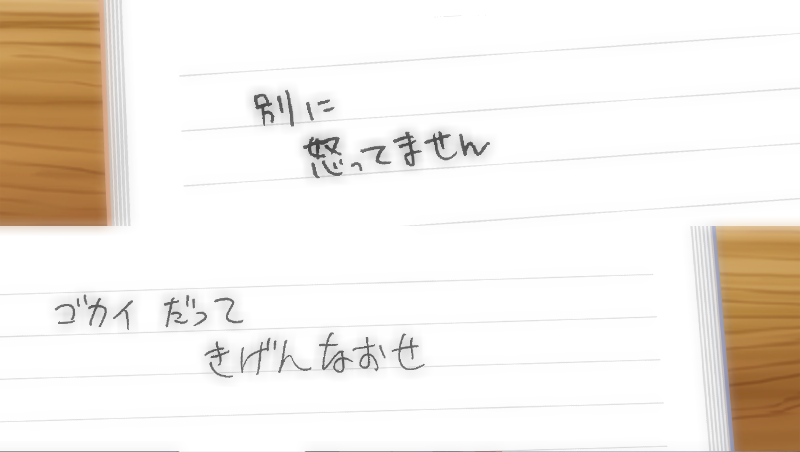 別に
怒ってません
ゴカイ だって
きげんなおせ